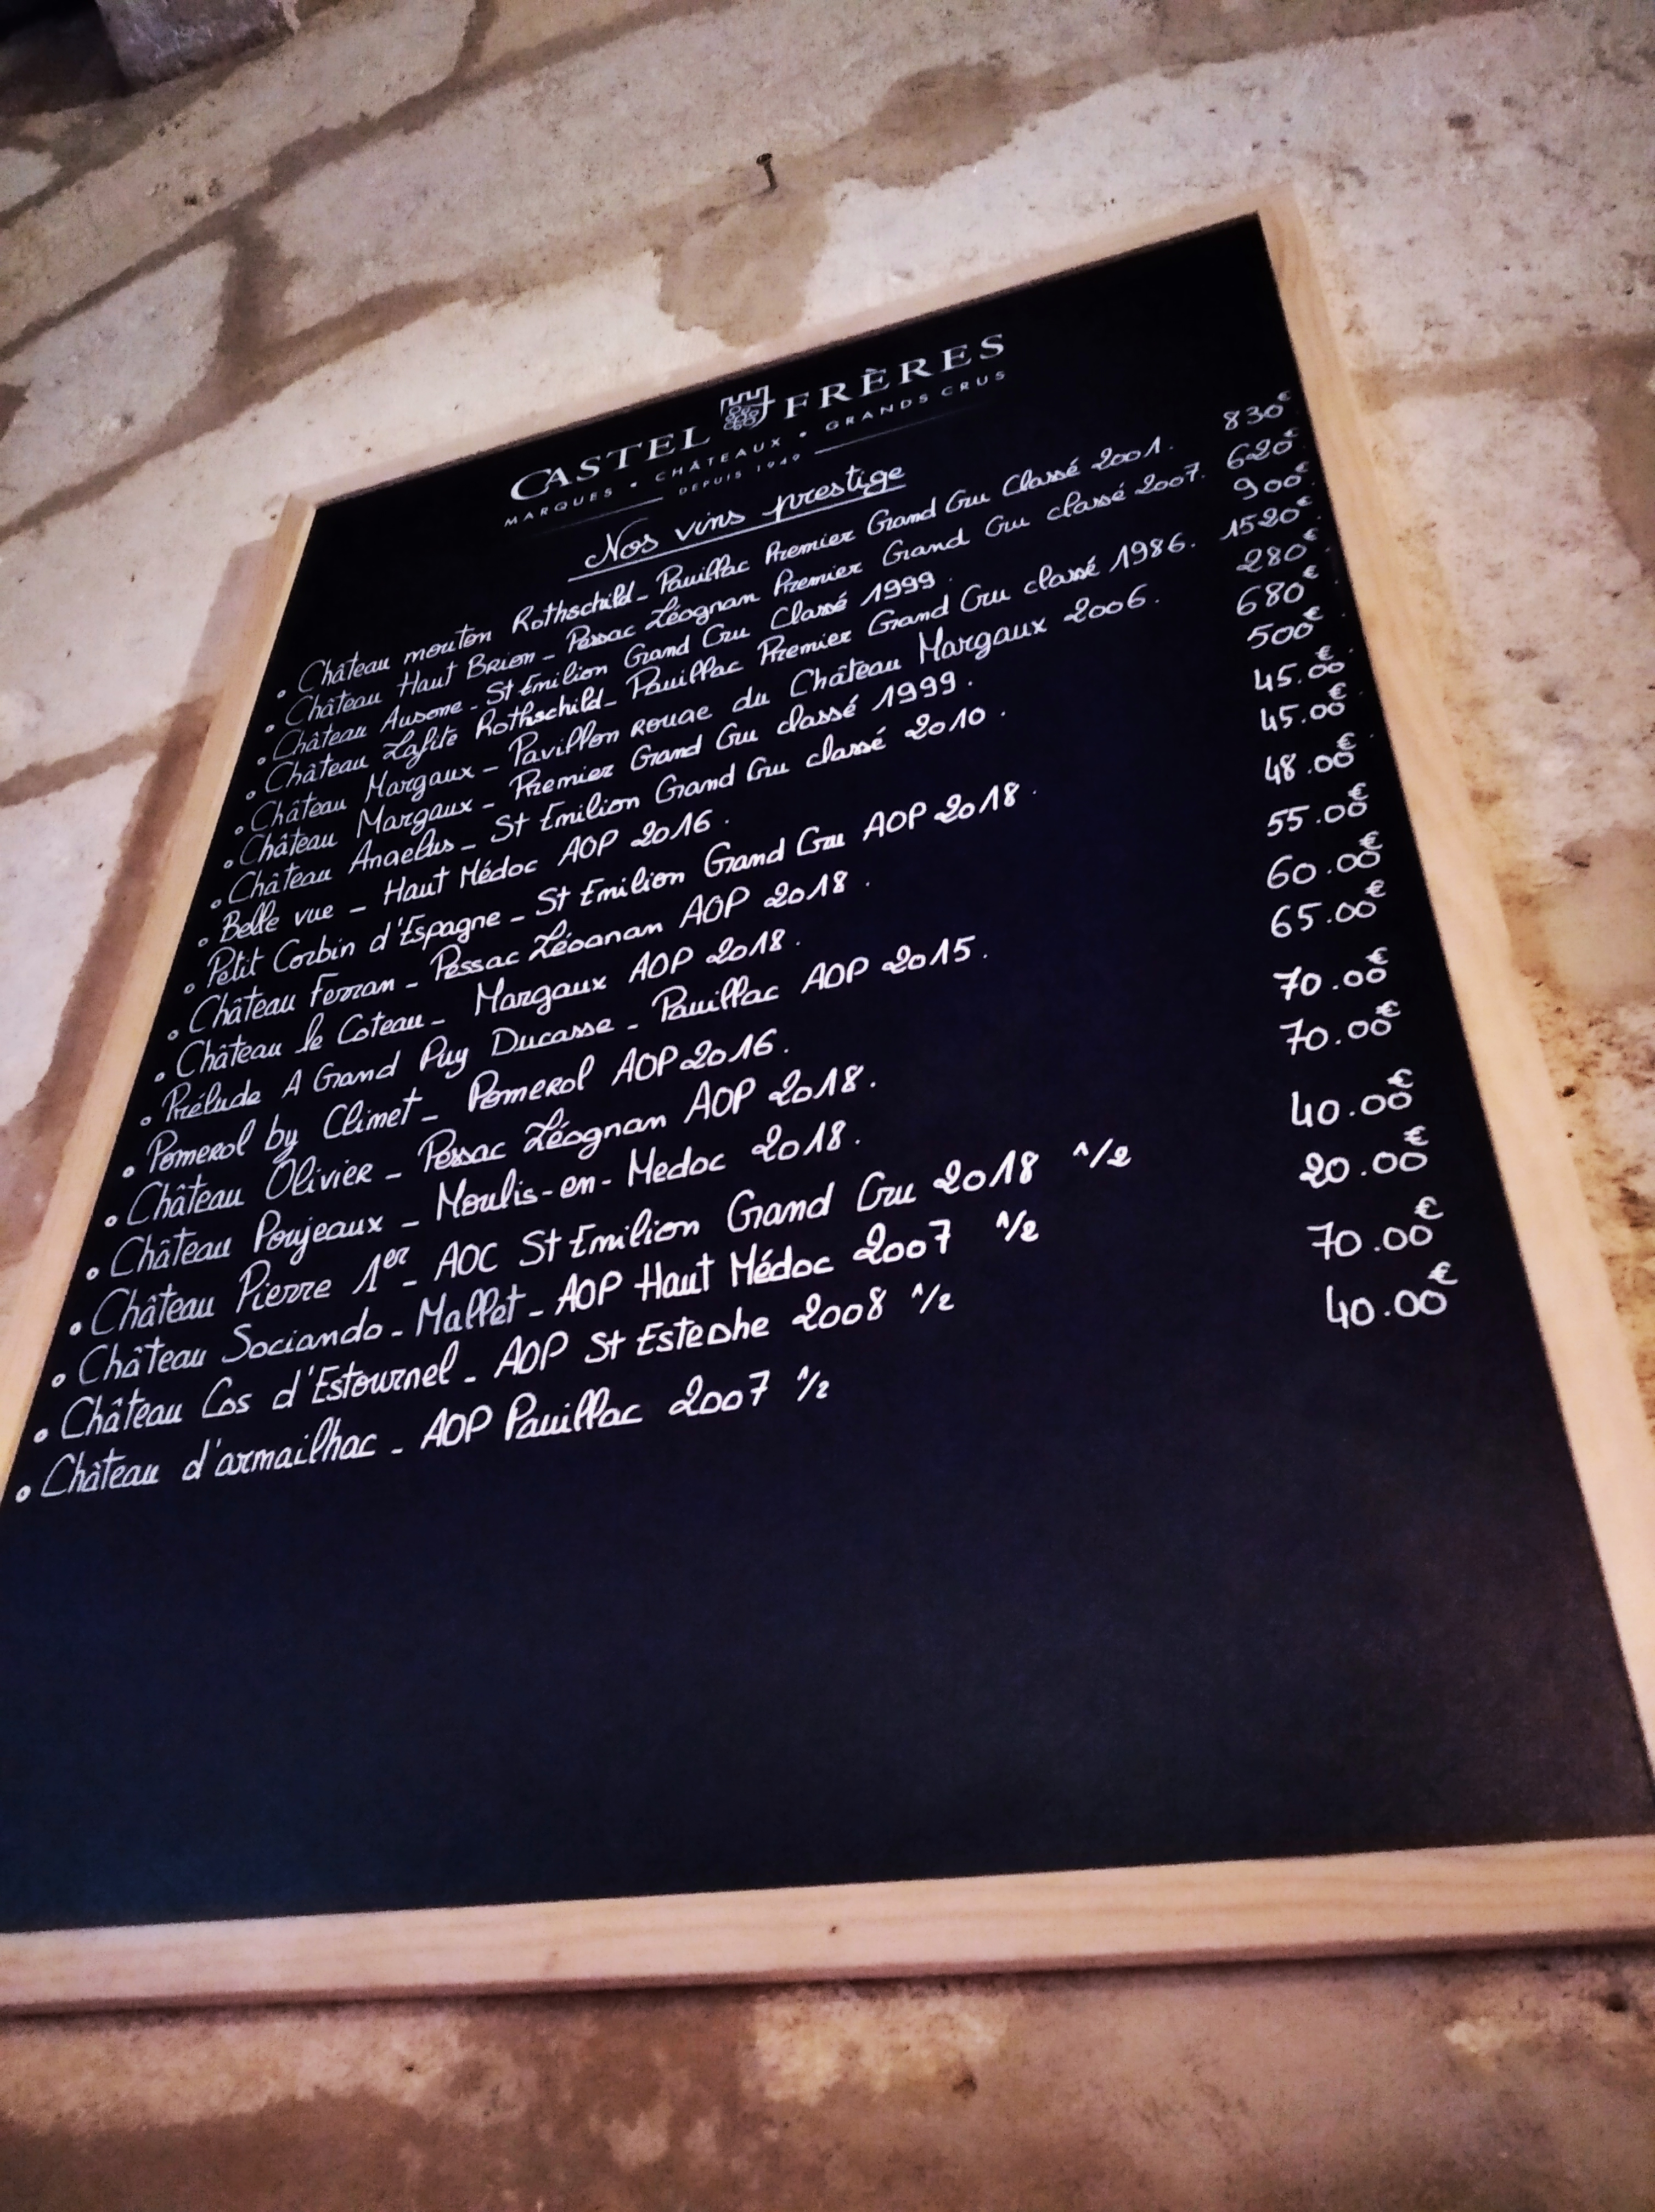 CASTEL FRÈRES
MARQUES • CHÂTEAUX • GRANDS CRUS
DEPUIS 1949
Nos vins prestige
• Château mouton Rothschild - Pauillac Premier Grand Cru Classé 2001. 830€
• Château Haut Brion - Pessac Léognan Premier Grand Cru classé 2007. 620€
• Château Ausone - St Emilion Grand Cru Classé 1999. 900€
• Château Lafite Rothschild - Pauillac Premier Grand Cru classé 1986. 1520€
• Château Margaux - Pavillon Rouge du Château Margaux 2006. 280€
• Château Margaux - Premier Grand Cru classé 1999. 680€
• Château Angelus - St Emilion Grand Cru classé 2010. 500€
• Belle vue - Haut Médoc AOP 2016. 45.00€
• Petit Corbin d'Espagne - St Emilion Grand Cru AOP 2018. 45.00€
• Château Ferran - Pessac Léognan AOP 2018. 48.00€
• Château le Coteau - Margaux AOP 2018. 55.00€
• Prélude A Grand Puy Ducasse - Pauillac AOP 2015. 60.00€
• Pomerol by Climet - Pomerol AOP 2016. 65.00€
• Château Olivier - Pessac Léognan AOP 2018. 70.00€
• Château Poujeaux - Moulis-en-Medoc 2018. 70.00€
• Château Pierre 1er - AOC St Emilion Grand Cru 2018 1/2 40.00€
• Château Sociando - Mallet - AOP Haut Médoc 2007 1/2 20.00€
• Château Cos d'Estournel - AOP St Estephe 2008 1/2 70.00€
• Château d'armailhac - AOP Pauillac 2007 1/2 40.00€